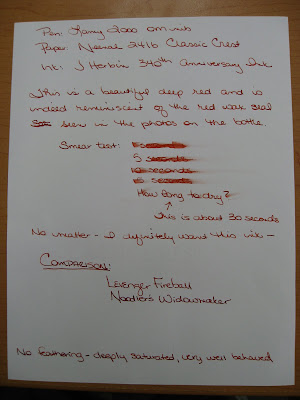 Pen: Lamy 2000 OM nib
Paper: Neenah 24lb Classic Crest
Ink: J Herbin 340th Anniversary Ink
This is a beautiful deep red and is
indeed reminiscent of the red wax seal
seen in the photos on the bottle.
Smear test:
5 seconds
10 seconds
15 seconds
How long to dry?
↑
This is about 30 seconds
No matter - I definitely want this ink -
Comparison:
Levenger Fireball
Noodler's Widowmaker
No feathering - deeply saturated, very well behaved